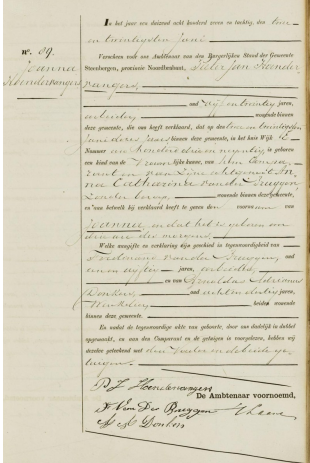 In het jaar een duizend acht honderd zeven en tachtig, den twee
en twintigsten Juni
Verscheen voor ons Ambtenaar van den Burgerlijken Stand der Gemeente
Steenbergen, provincie Noordbrabant, Pieter Jan Hender
No. 89.
Joanna
Hendervangers
vangers,
oud vijf en twintig jaren,
arbeider, wonende binnen
deze gemeente, die aan heeft verklaard, dat op den twee en twintigsten
Juni dezes jaars binnen deze gemeente, in het huis Wijk E
Nummer een honderd drie en negentig, is geboren
een kind van de vrouwelijke kunne, van hem
en van zijne echtgenoote An
na Catharina van der Bruggen,
zonder beroep, wonende binnen deze gemeente,
en van hetwelk hij verklaard heeft te geven den voornaam van
Joanna, en dat het is geboren om
drie ure des morgens,
Welke aangifte en verklaring zijn geschied in tegenwoordigheid van
van der Bruggen, oud
een en vijftig jaren, arbeider,
en van Arnoldus Adrianus
Donkers, oud acht en dertig jaren,
beiden wonende
binnen deze gemeente.
En nadat de tegenwoordige akte van geboorte, door ons dadelijk in dubbel
opgemaakt, en aan den Comparant en de getuigen is voorgelezen, hebben wij
dezelve geteekend met den vader en de beide ge
tuigen.
P J Hendervangers
De Ambtenaar voornoemd,
Van Der Bruggen
A A Donkers